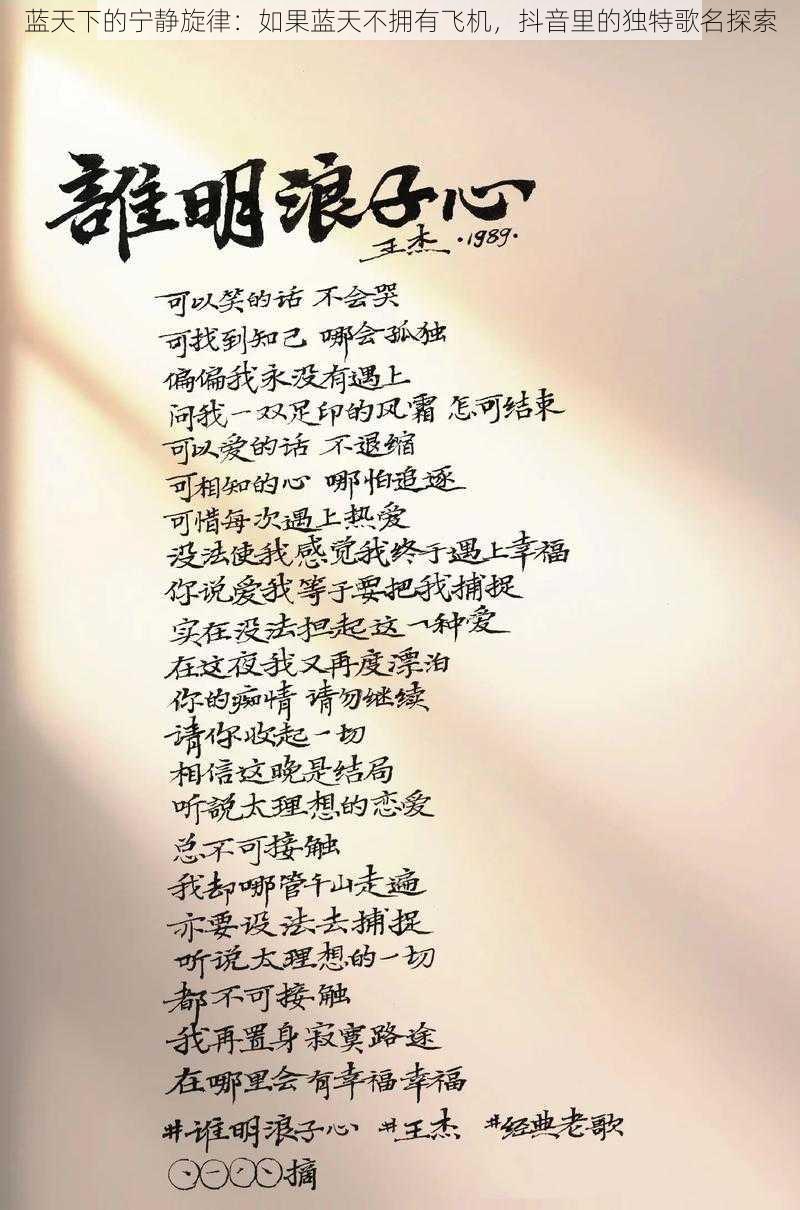 蓝天下的宁静旋律：如果蓝天不拥有飞机，抖音里的独特歌名探索
誰明浪子心
王杰·1989·
可以笑的话 不会哭
可找到知己 哪会孤独
偏偏我永没有遇上
问我一双足印的风霜 怎可结束
可以爱的话 不退缩
可相知的心 哪怕追逐
可惜每次遇上热爱
没法使我感觉我终于遇上幸福
你说爱我等于要把我捕捉
实在没法担起这一种爱
在这夜我又再度漂泊
你的痴情 请勿继续
请你收起一切
相信这晚是结局
听説太理想的恋爱
总不可接触
我却哪管千山走遍
亦要设法去捕捉
听说太理想的一切
都不可接触
我再置身寂寞路途
在哪里会有幸福幸福
#谁明浪子心 #王杰 #经典老歌
摘